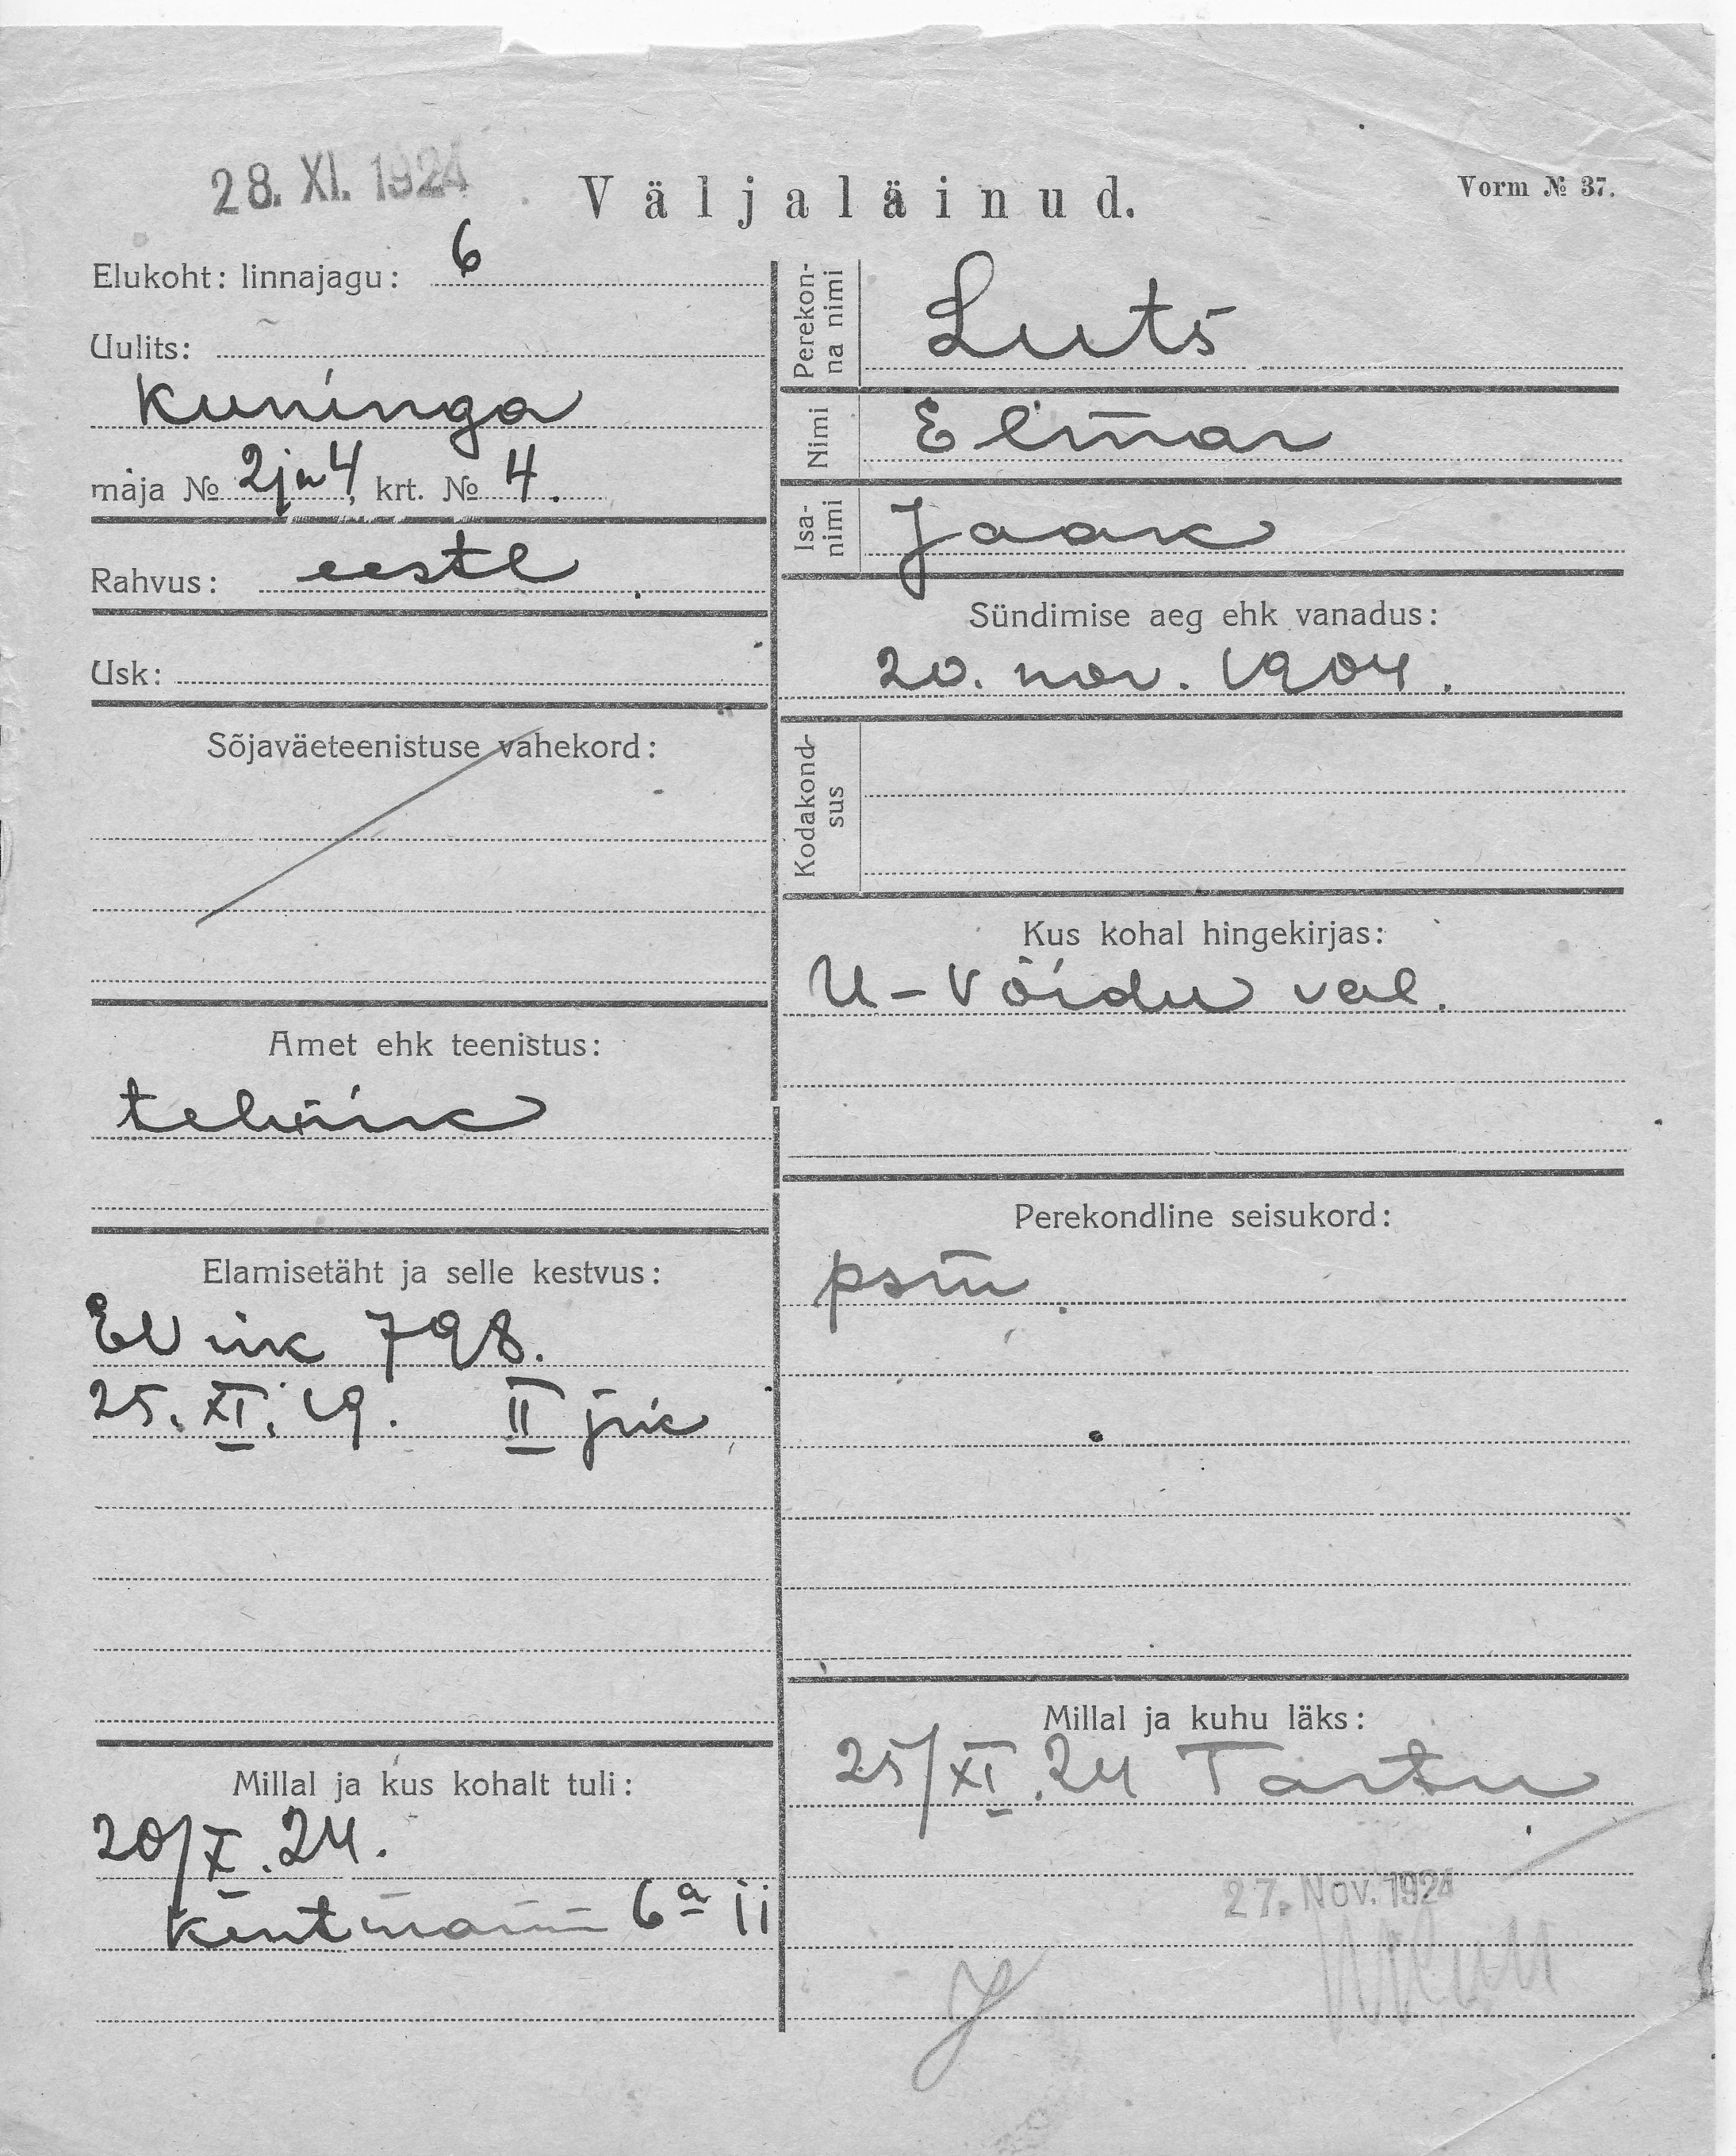 28. XI. 1924
Väljaläinud.
Vorm № 37.
Elukoht: linnajagu: 6
Uulits:
Kuninga
maja № 2 ja 4, krt. № 4.
Rahvus: eestl.
Usk:
Sõjaväeteenistuse vahekord:
Amet ehk teenistus:
tehnik
Elamisetäht ja selle kestvus:
EV iik 798.
25. XI. 19. II jsk
Millal ja kus kohalt tuli:
20/X. 24.
Kentmanni 6a 11
Perekon-
na nimi
Luts
Nimi
Elmar
Isa-
nimi
Jaak
Sündimise aeg ehk vanadus:
20. nov. 1904.
Kodakond-
sus
Kus kohal hingekirjas:
U-Võidu val.
Perekondline seisukord:
Millal ja kuhu läks:
25/XI. 24 Tartu
27. Nov. 1924